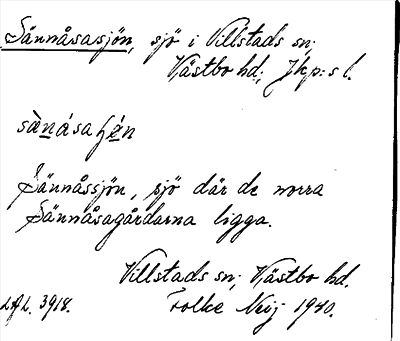 Sännåsasjön, sjö i Villstads sn;
Västbo hd; Jkp:s l.
sä̀násaʃǿn
Sännåssjön, sjö där de norra
Sännåsagårdarna ligga.
Villstads sn; Västbo hd.
LAL. 3918. Folke Neij 1940.